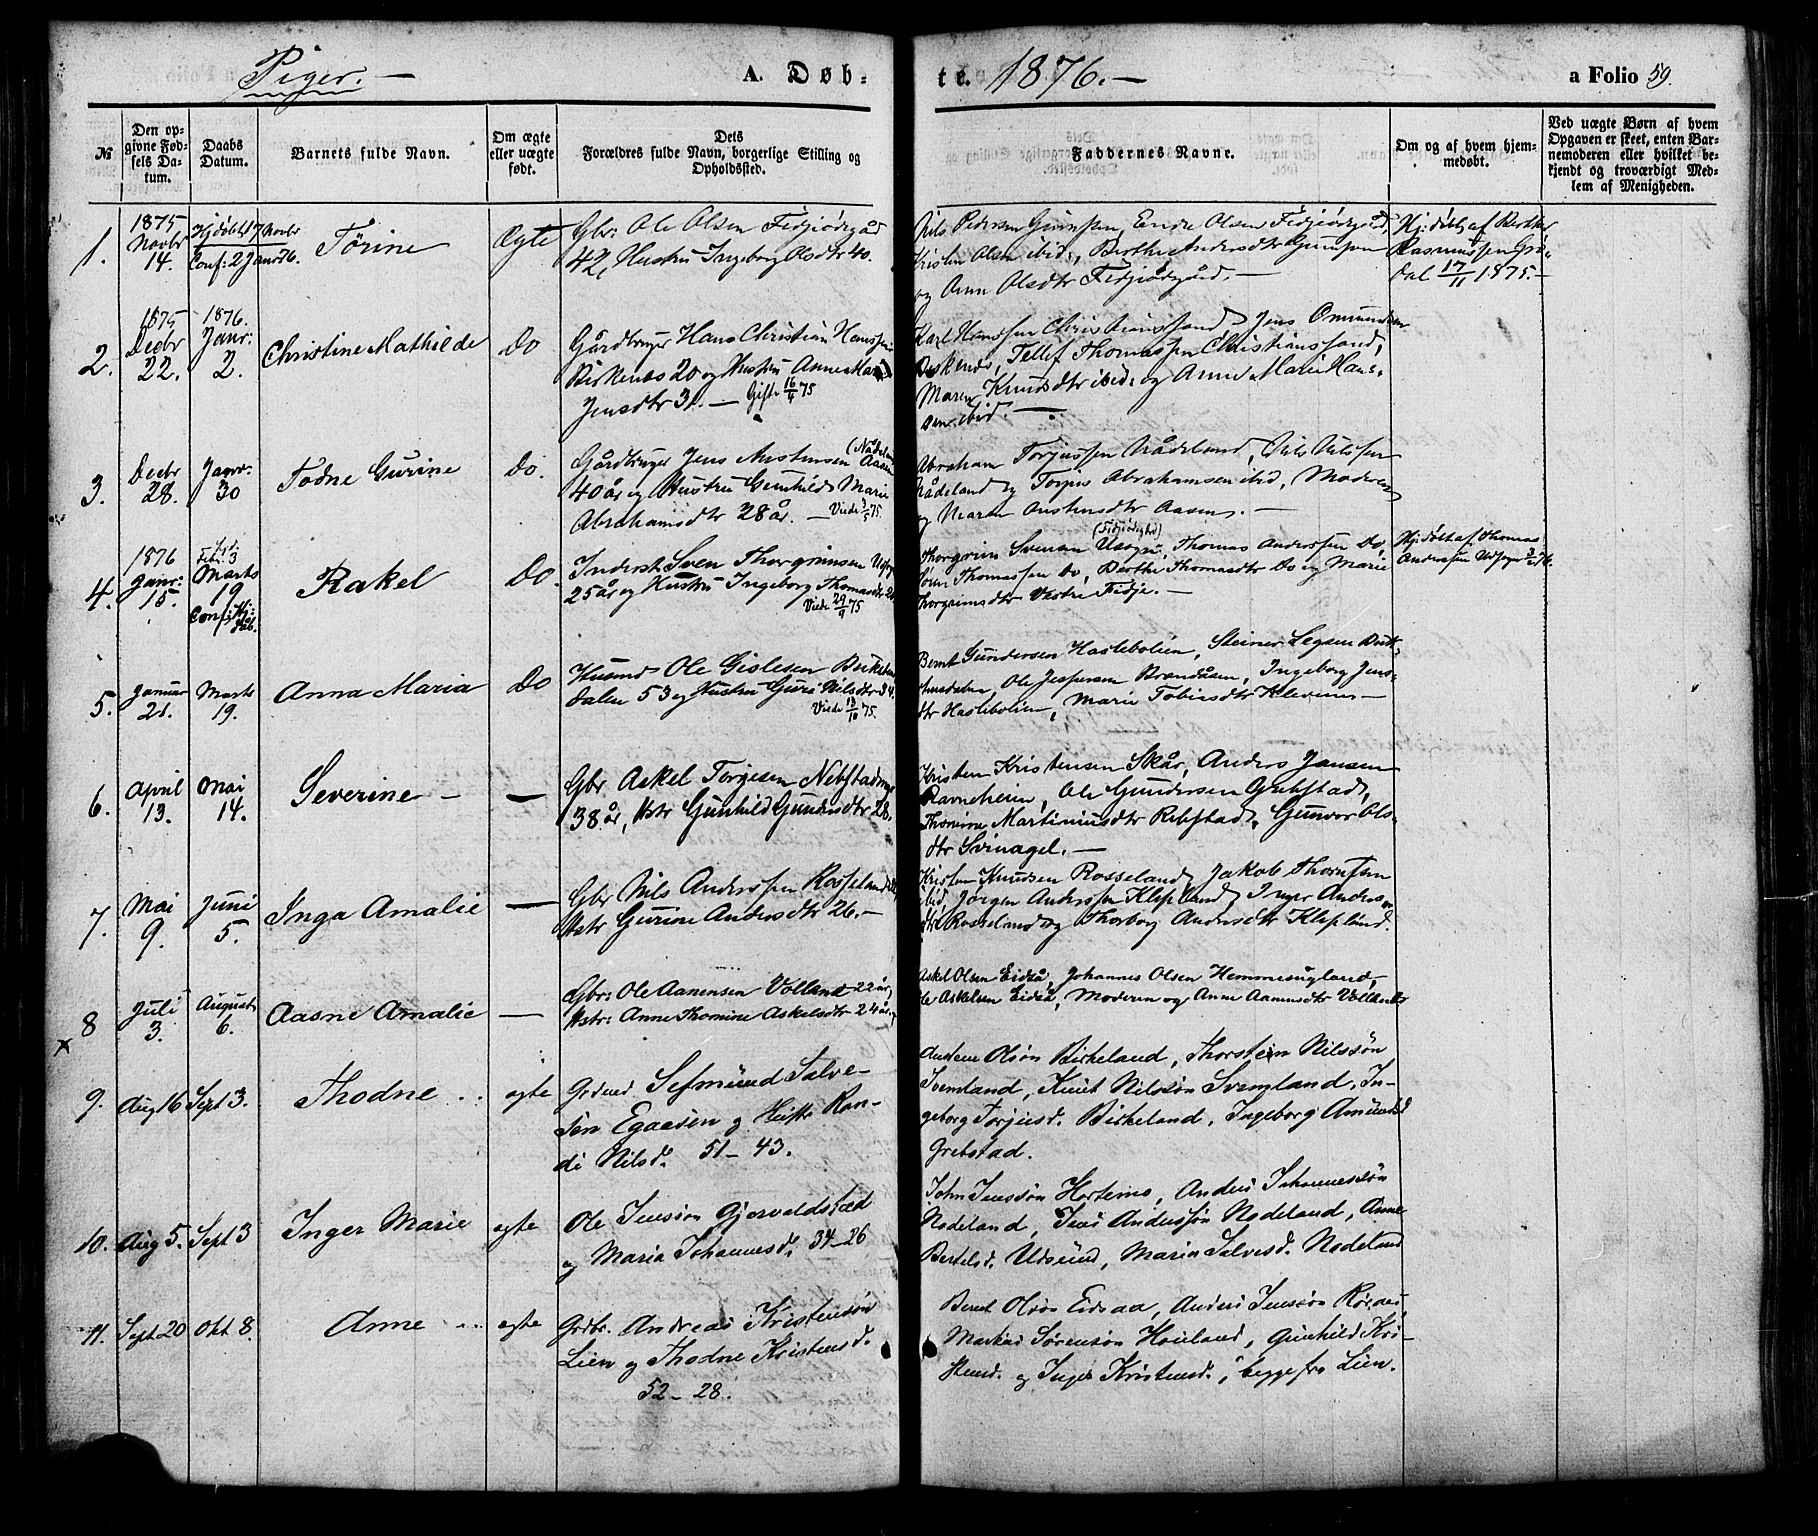 Piger. —
A. Døb-
te. 1876. —
a Folio 59.
№
Den op-
givne Fød-
sels Da-
tum.
Daabs
Datum.
Barnets fulde Navn.
Om ægte
eller uægte
født.
Dets
Forældres fulde Navn, borgerlige Stilling og
Opholdssted.
Faddernes Navne.
Om og af hvem hjem-
medøbt.
Ved uægte Børn af hvem
Opgaven er skeet, enten Bar-
nemoderen eller hvilket be-
kjendt og troværdigt Med-
lem af Menigheden.
1.
1875
Novbr
14.
Hjdøbt 17 Novbr
Conf: 2 Janr 76.
Tørine
Ægte
Gbr: Ole Olsen
42, Hustru Ingeborg Olsdtr 40.
Nils Pedersen Endre Olsen
Kristen Olsen ibid., Berthe Andersdtr
og Anne Olsdtr
Hj: døbt af Berthe
Rasmussen
dal 17/11 1875. —
2.
1875
Decbr
22.
1876.
Janr:
2.
Christine Mathilde
Do
Gårdbruger Hans Christian Hanssen
Birkenes 20 og Hustru Anne Marie
Jensdtr 31. — Gifte 16/4 75
Karl Hanssen Christianssand, Jens Omundsen
Birkenes, Tellef Thomassen Christianssand,
Maren Knudsdtr ibid: og Anne Marie Han-
sen ibid. —
3.
Decbr
28.
Janr:
30
Todne Gurine
Do.
Gårdbruger Jens Austensen Aasen
40 år og Hustru Gunhild Marie
Abrahamsdtr 28 år. — Viede 3/5 75.
Abraham Torjussen Rådeland, Nils Nilssen
Rådeland og Torjus Abrahamsen ibid, Moderen
og Maren Austensdtr Aasen. —
4.
1876
Janr:
15.
Febr: 3
Marts
19
Conf: Hj:
dåb.
Rakel
Do
Inderst Sven Thorgrimsen
25 år og Hustru Ingeborg Thomasdtr
Viede 29/9 75
Thorgrim Svensen Thomas Anderssen Do,
Søren Thomassen Do, Berthe Thomasdtr Do og Marie
Thorgrimsdtr Vestre Fidje. —
Hj: døbt af Thomas
Anderssen
5.
Januar
21.
Marts
19.
Anna Maria
Do
Husmd Ole Gislesen Birkeland
dalen 53 og Hustru Guri Nilsdtr
Viede 13/10 75.
Bernt Gundersen Haslebolien, Steiner
Ole Jespersen Ingeborg Jens-
dtr Haslebolien, Marie Tobiasdtr Klevene —
6.
April
13.
Mai
14.
Severine —
—
Gbr Askel Torgesen
38 år, Hstr Gunhild Gundersdtr 28.
Kristen Kristensen Skår, Anders Jansen
Ravneheien, Ole Gundersen Grebstad,
Thomine Martiniusdtr Rebstad, Gunvor Ols-
dtr Svinagel. —
7.
Mai
9.
Juni
5.
Inga Amalie
—
Gbr Nils Anderssen Rosseland
Hstr Gurine Andersdtr 26. —
Kristen Knudsen Rosseland, Jakob
ibid, Jørgen Anderssen Klepland, Inger Anders-
dtr Rosseland og Thorborg Andersdtr Klepland.
8
x
Juli
3.
August
6.
Aasne Amalie
—
Gbr: Ole Aanensen Volland 22 år,
Hstr: Anne Thomine Askelsdtr 24 år.
Askel Olsen Eidså, Johannes Olsen
Ole Askelsen Eidså, Moderen og Anne Aanensdtr Volland
9.
Aug 16
Sept 3.
Thodne ..
ægte
Grdmd Sefmund Salve-
sen og Hustr Ran-
di Nilsd. 51 – 43.
Olsøn Birkeland, Thorstein Nilssøn
Svemland, Knut Nilssøn Svemland, In-
geborg Torjusd. Birkeland, Ingeborg Amundsd
Grebstad.
10.
Aug 5.
Sept 3
Inger Marie
ægte
Ole Jenssøn
og Maria Johannesd. 34 – 26
John Jenssøn Hortemo, Anders Johannessøn
Nodeland, Jens Anderssøn Nodeland, Anne
Bertelsd. Udsund, Maria Salvesd. Nodeland
11.
Sept 20
Okt 8.
Anne ...
ægte
Grdbr. Andreas Kristensøn
Lien og Thodne Kristensd.
52 – 28.
Bernt Olsøn Eidsaa, Anders Jenssøn
Markus Sørensøn Gunhild Kri-
stensd. og Inger Kristensd., begge fra Lien.